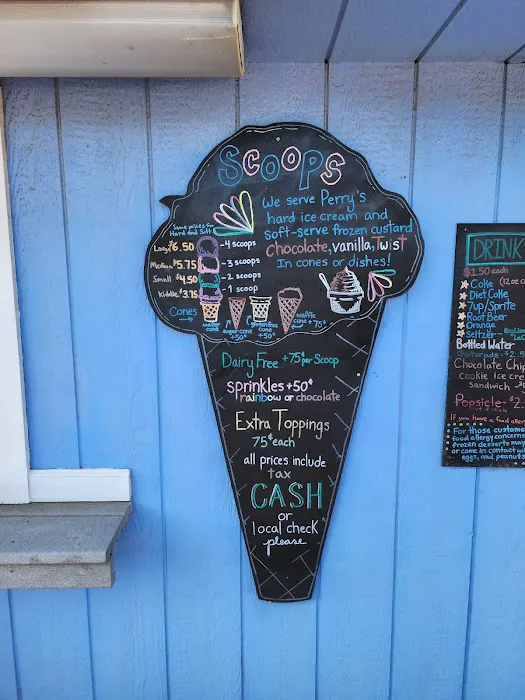 Scoops
We serve Perry's
hard ice cream and
soft-serve frozen custard
Chocolate, vanilla, Twist
In cones or dishes!
Same prices for
Hard and Soft
$6.50 -4 scoops
$5.75 -3 scoops
Small $4.50 -2 scoops
Kiddie $3.75 -1 scoop
Cones →
wafer cone
sugar cone +50¢
gluten free cone +50¢
waffle cone +75¢
Dairy Free +75¢ per Scoop
sprinkles +50¢
rainbow or chocolate
Extra Toppings
75¢ each
all prices include
tax
CASH
or
local check
please
DRINK
$1.50 each
Coke (12 oz
Diet Coke
7up/Sprite
Root Beer
Orange
Seltzer
Bottled Water
Gatorade
Chocolate Chip
cookie ice cre
Sandwich
Popsicle
If you have a food aller
For those custome
food allergy concerns
frozen desserts may
or come in contact wi
eggs, and peanuts